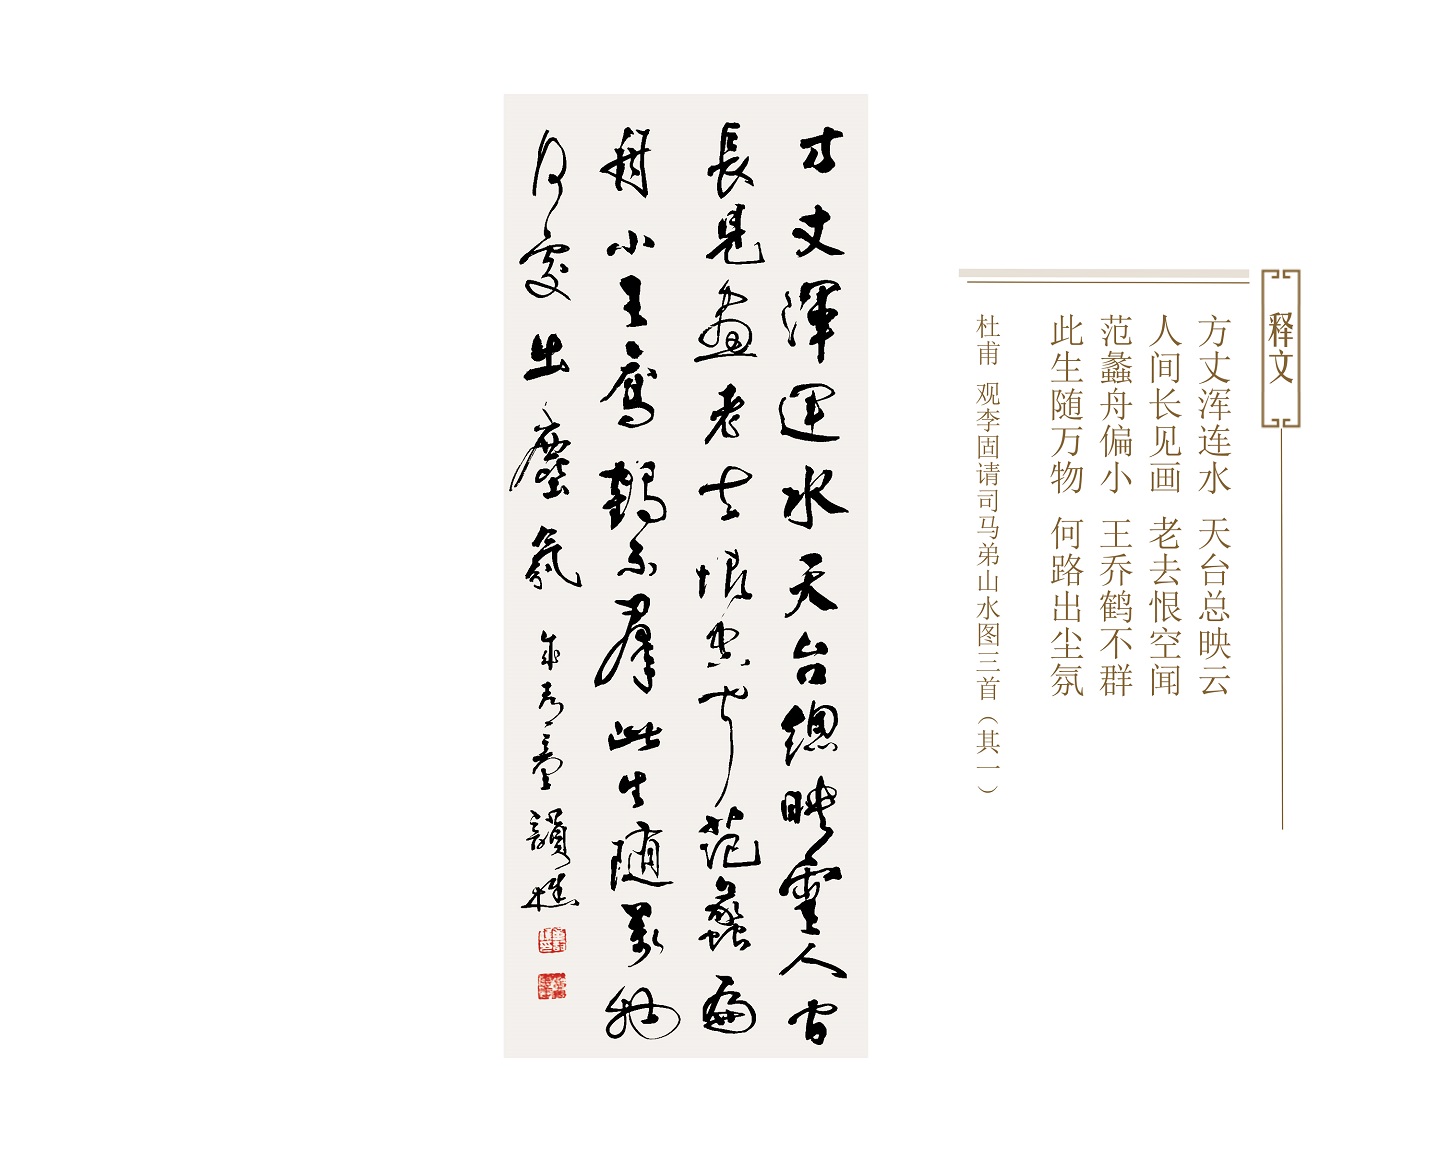 释文
方丈浑连水 天台总映云
人间长见画 老去恨空闻
范蠡舟偏小 王乔鹤不群
此生随万物 何路出尘氛
杜甫 观李固请司马弟山水图三首（其一）
方丈渾連水天台總映雲人間
長見畫老去恨空聞范蠡偏
舟小王喬鶴不羣此生随萬物
何處出塵氛